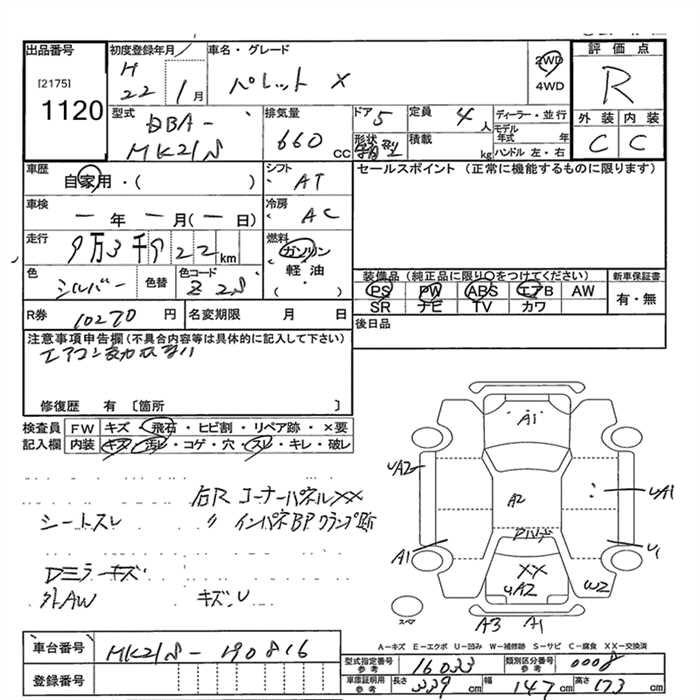 出品番号
[2175]
1120
初度登録年月
H 22 1月
車名・グレード
パレット X
2WD
4WD
評価点
R
外装 内装
C C
型式
DBA-
MK21S
排気量
660 CC
ドア 5
定員 4人
形状
積載 kg
ディーラー・並行
モデル年式 年
ハンドル 左・右
車歴
自家用・( )
シフト AT
セールスポイント (正常に機能するものに限ります)
車検
ー年ー月(ー日)
冷房 AC
走行
9万3千922km
燃料
ガソリン
軽油
( ・ )
色
シルバー
色替
色コード
Z2S
装備品(純正品に限り○をつけてください)
PS PW ABS エアB AW
SR ナビ TV カワ
新車保証書
有・無
R券 10270円
名変期限 月 日
後日品
注意事項申告欄(不具合内容等は具体的に記入して下さい)
エアコン効カない
修復歴 有 [箇所 ]
検査員 FW キズ・飛石・ヒビ割・リペア跡・×要
記入欄 内装 キズ・汚レ・コゲ・穴・スレ・キレ・破レ
右Rコーナーパネル××
シートスレ 〃インパネBPクランプ跡
Dミラーキズ
外AW キズ、U
A1
UA2
A2
UA1
A1
U1
××
UA2
W2
スペア
A3 A1
A-キズ E-エクボ U-凹み W-補修跡 S-サビ C-腐食 XX-交換済
車台番号 MK21S-190816
登録番号
型式指定番号 参考 16033
類別区分番号 参考 0008
車庫証明用 参考 長さ 339cm 幅 147cm 高さ 173cm